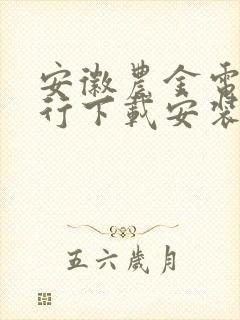 安徽農金電
行下載安裝
五六歲月